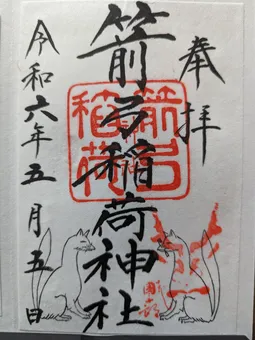 奉拝
箭弓稲荷神社
箭弓稲荷
令和六年五月五日